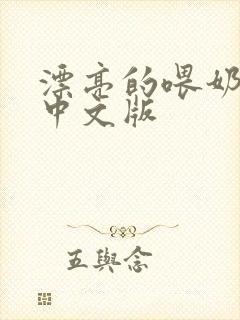 漂亮的喂奶
中文版
五與念